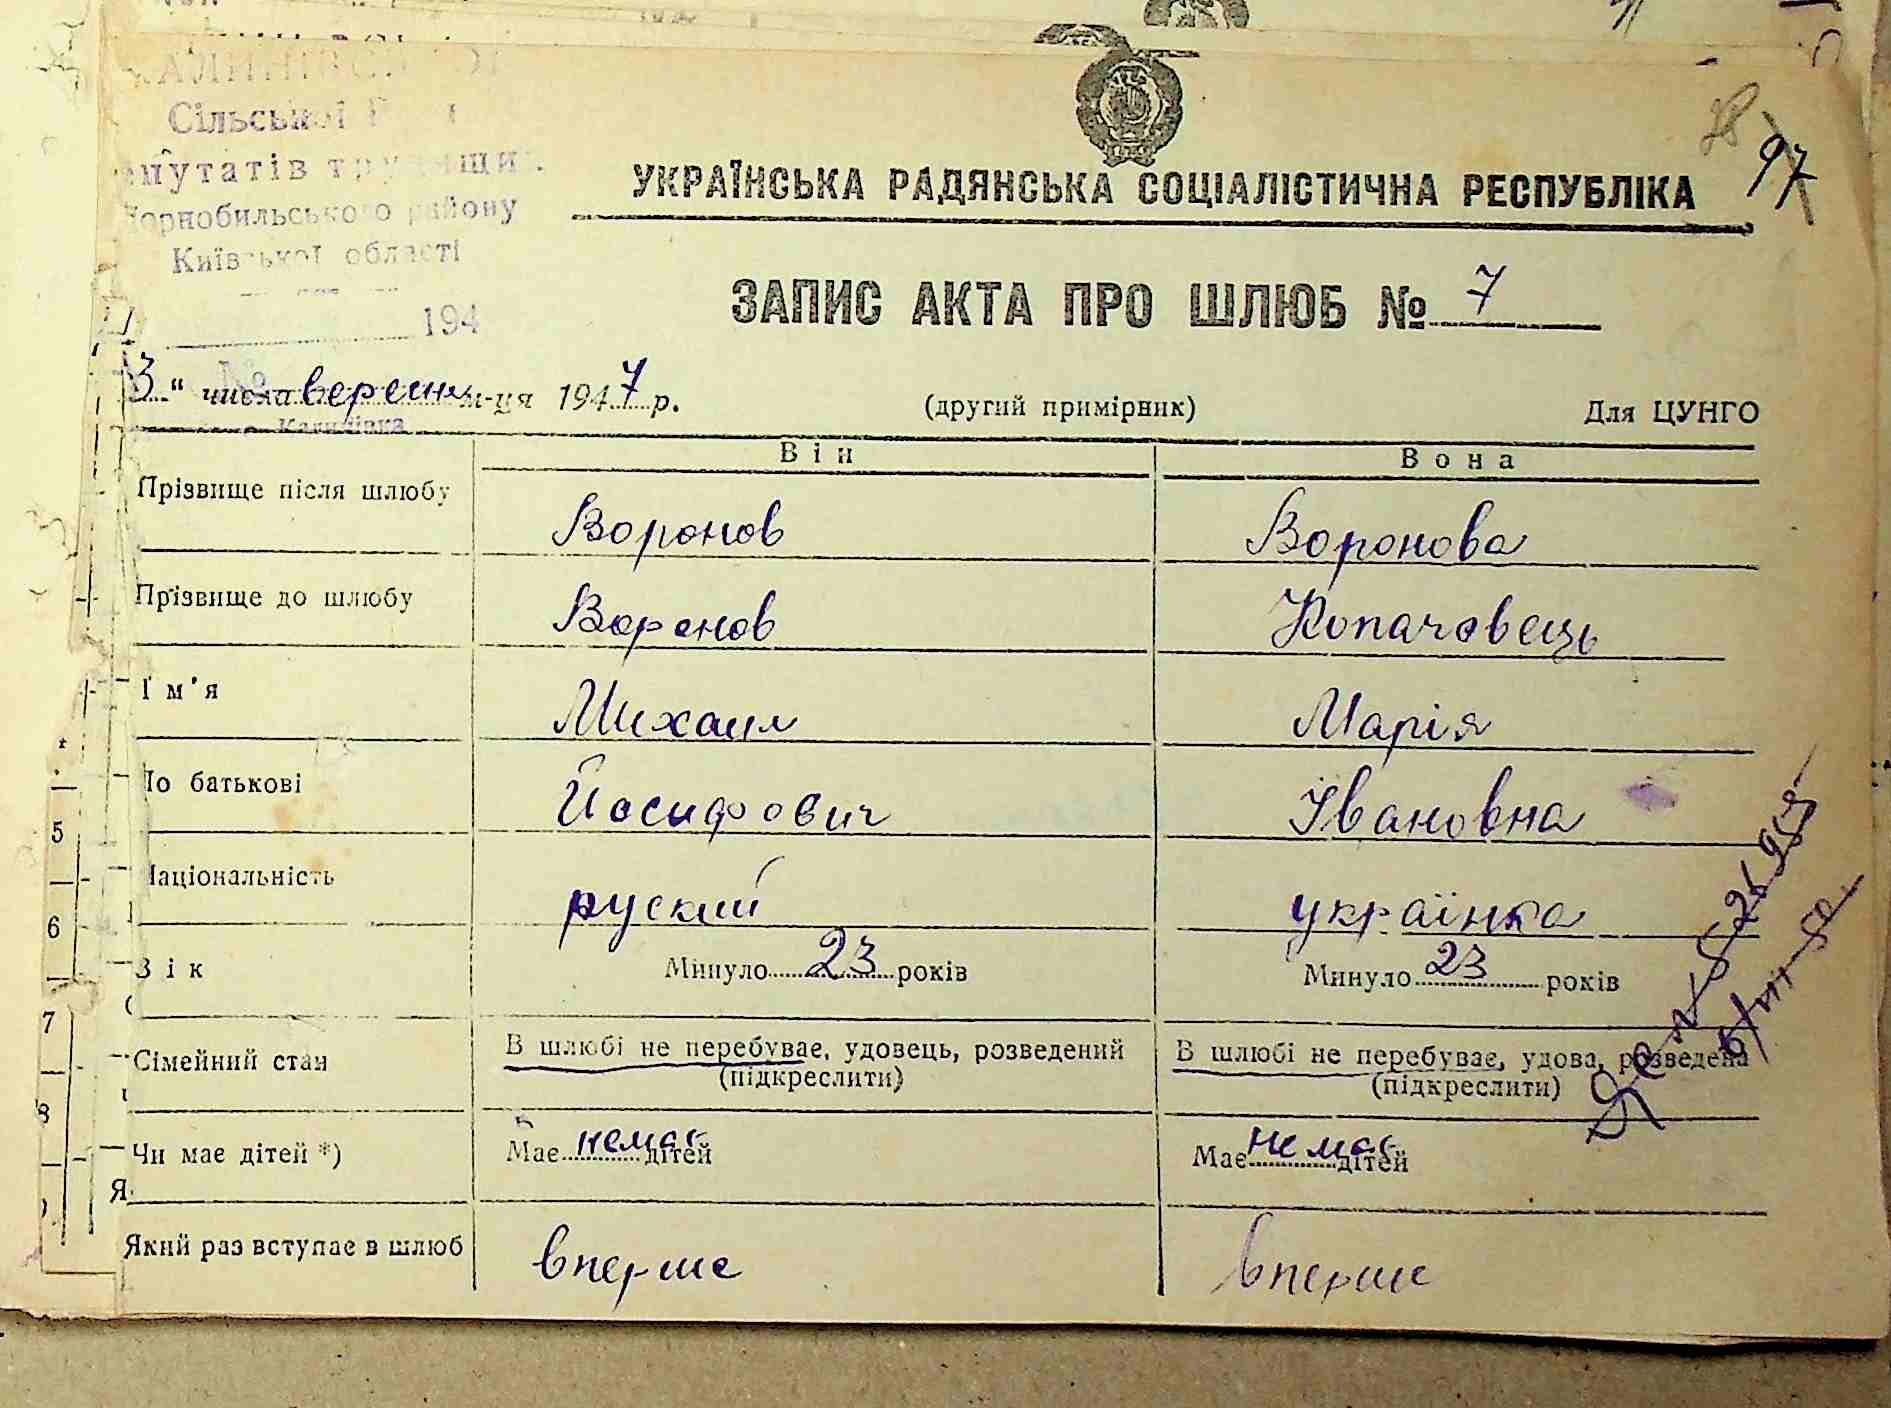 Сільської
трудящих
Чорнобильського району
Київської області
194
97
УКРАЇНСЬКА РАДЯНСЬКА СОЦІАЛІСТИЧНА РЕСПУБЛІКА
ЗАПИС АКТА ПРО ШЛЮБ № 7
3 " числа вересня м-ця 1947 р. (другий примірник) Для ЦУНГО
Калинівка
Він Вона
Прізвище після шлюбу Воронов Воронова
Прізвище до шлюбу Воронов Копачовець
Ім'я Михаил Марія
По батькові Йосифович Івановна
Національність руский українка
Вік Минуло 23 років Минуло 23 років
Сімейний стан В шлюбі не перебуває, удовець, розведений В шлюбі не перебуває, удова, розведена
(підкреслити) (підкреслити)
Чи має дітей *) Має немає дітей Має немає дітей
Який раз вступає в шлюб вперше вперше
5
6
7
8
Я